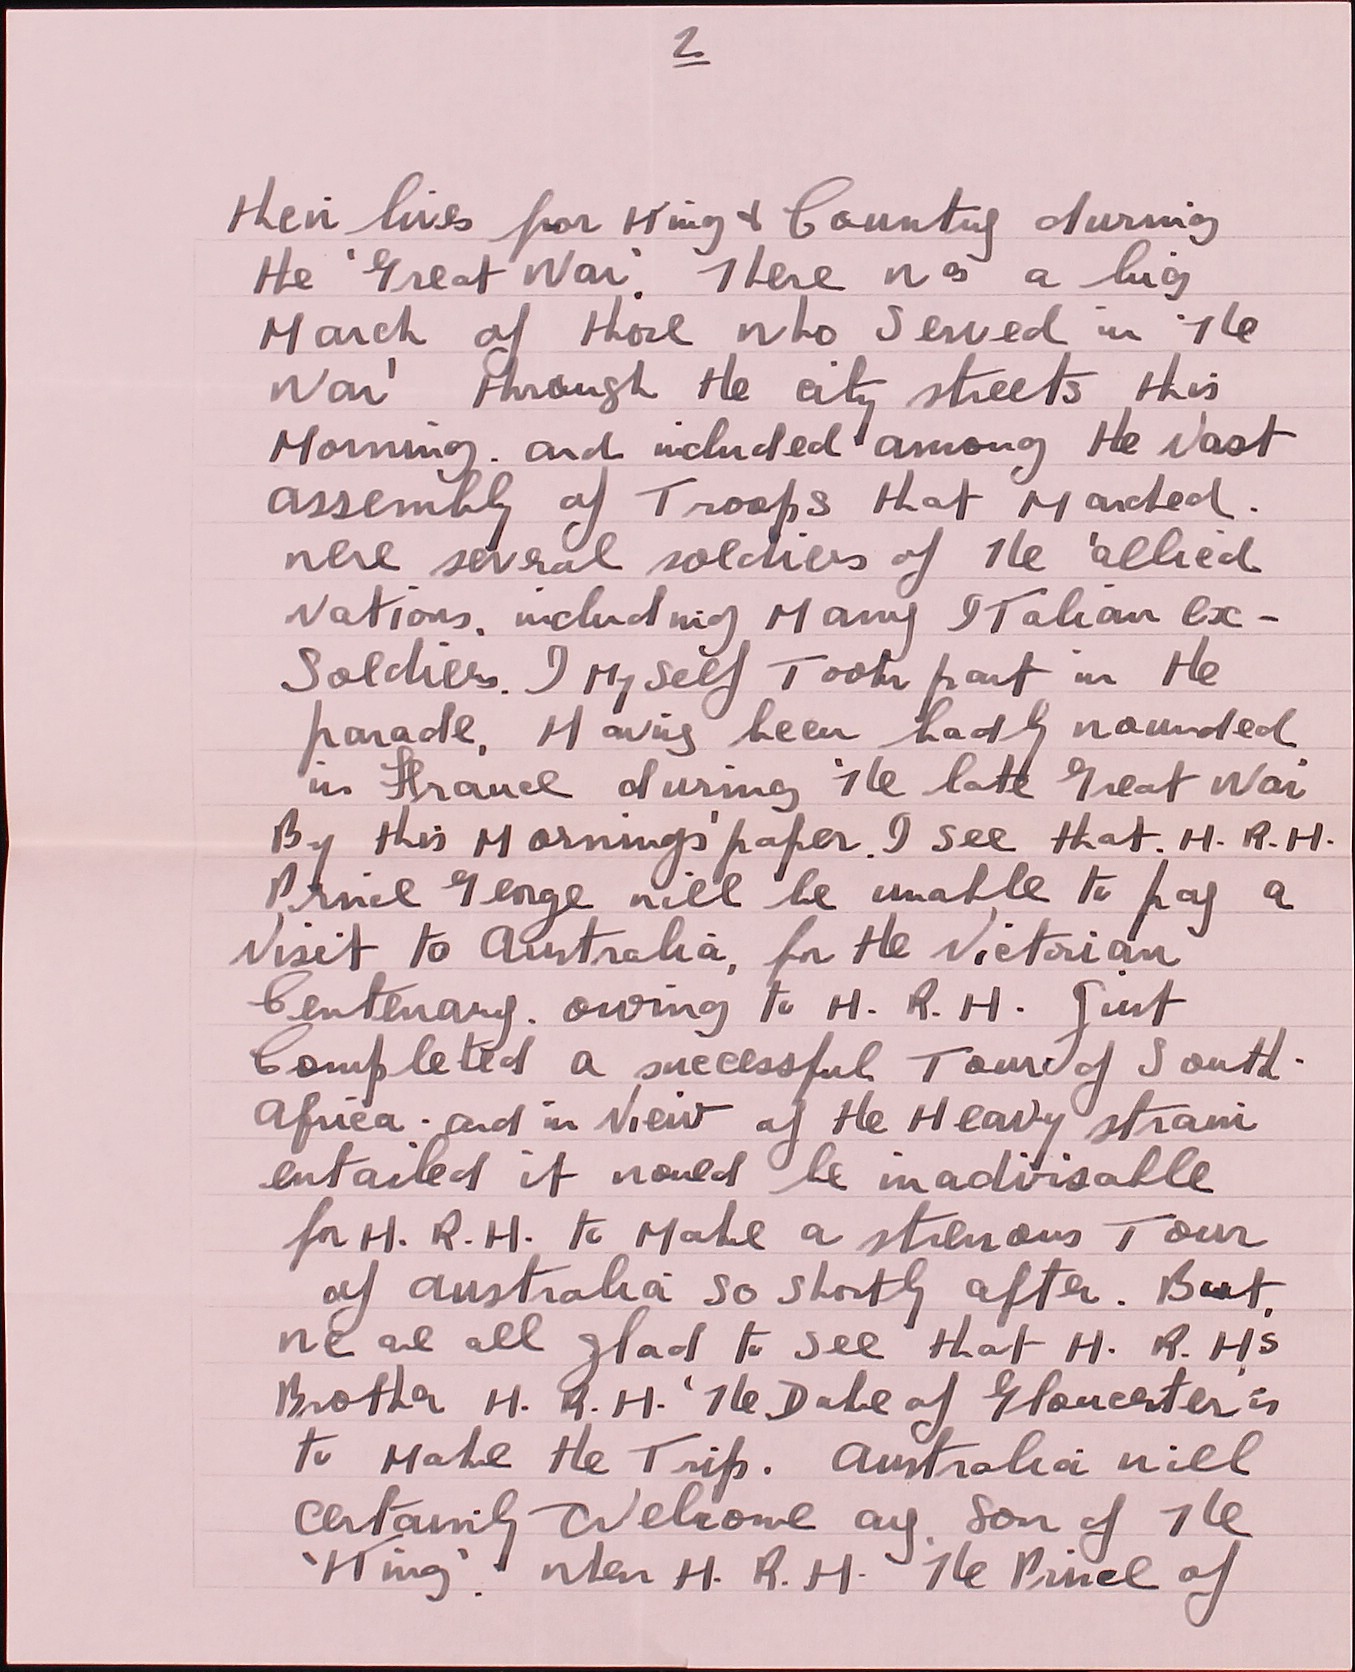 2
their lives for King & Country during
the 'Great War'. There was a big
March of those who Served in 'the
War' through the city streets this
Morning. and included among the Vast
assembly of Troops that Marched.
were several soldiers of the 'allied
Nations. including Many ITalian ex-
Soldiers. I Myself Took part in the
parade, Having been badly wounded
in France during 'the late Great War
By this Mornings' paper. I see that. H. R. H.
Prince George will be unable to pay a
Visit to Australia, for the Victorian
Centenary. owing to H. R. H. Just
Completed a successful Tour of South-
Africa. and in View of the Heavy strain
entailed it would be inadvisable
for H. R. H. to Make a strenous Tour
of australia so shortly after. But,
we are all glad to see that H. R. H's
Brother H. R. H. 'The Duke of Gloucester is
to Make the Trip. Australia will
certainly Welcome any. Son of The
'King'. when H. R. H. The Prince of